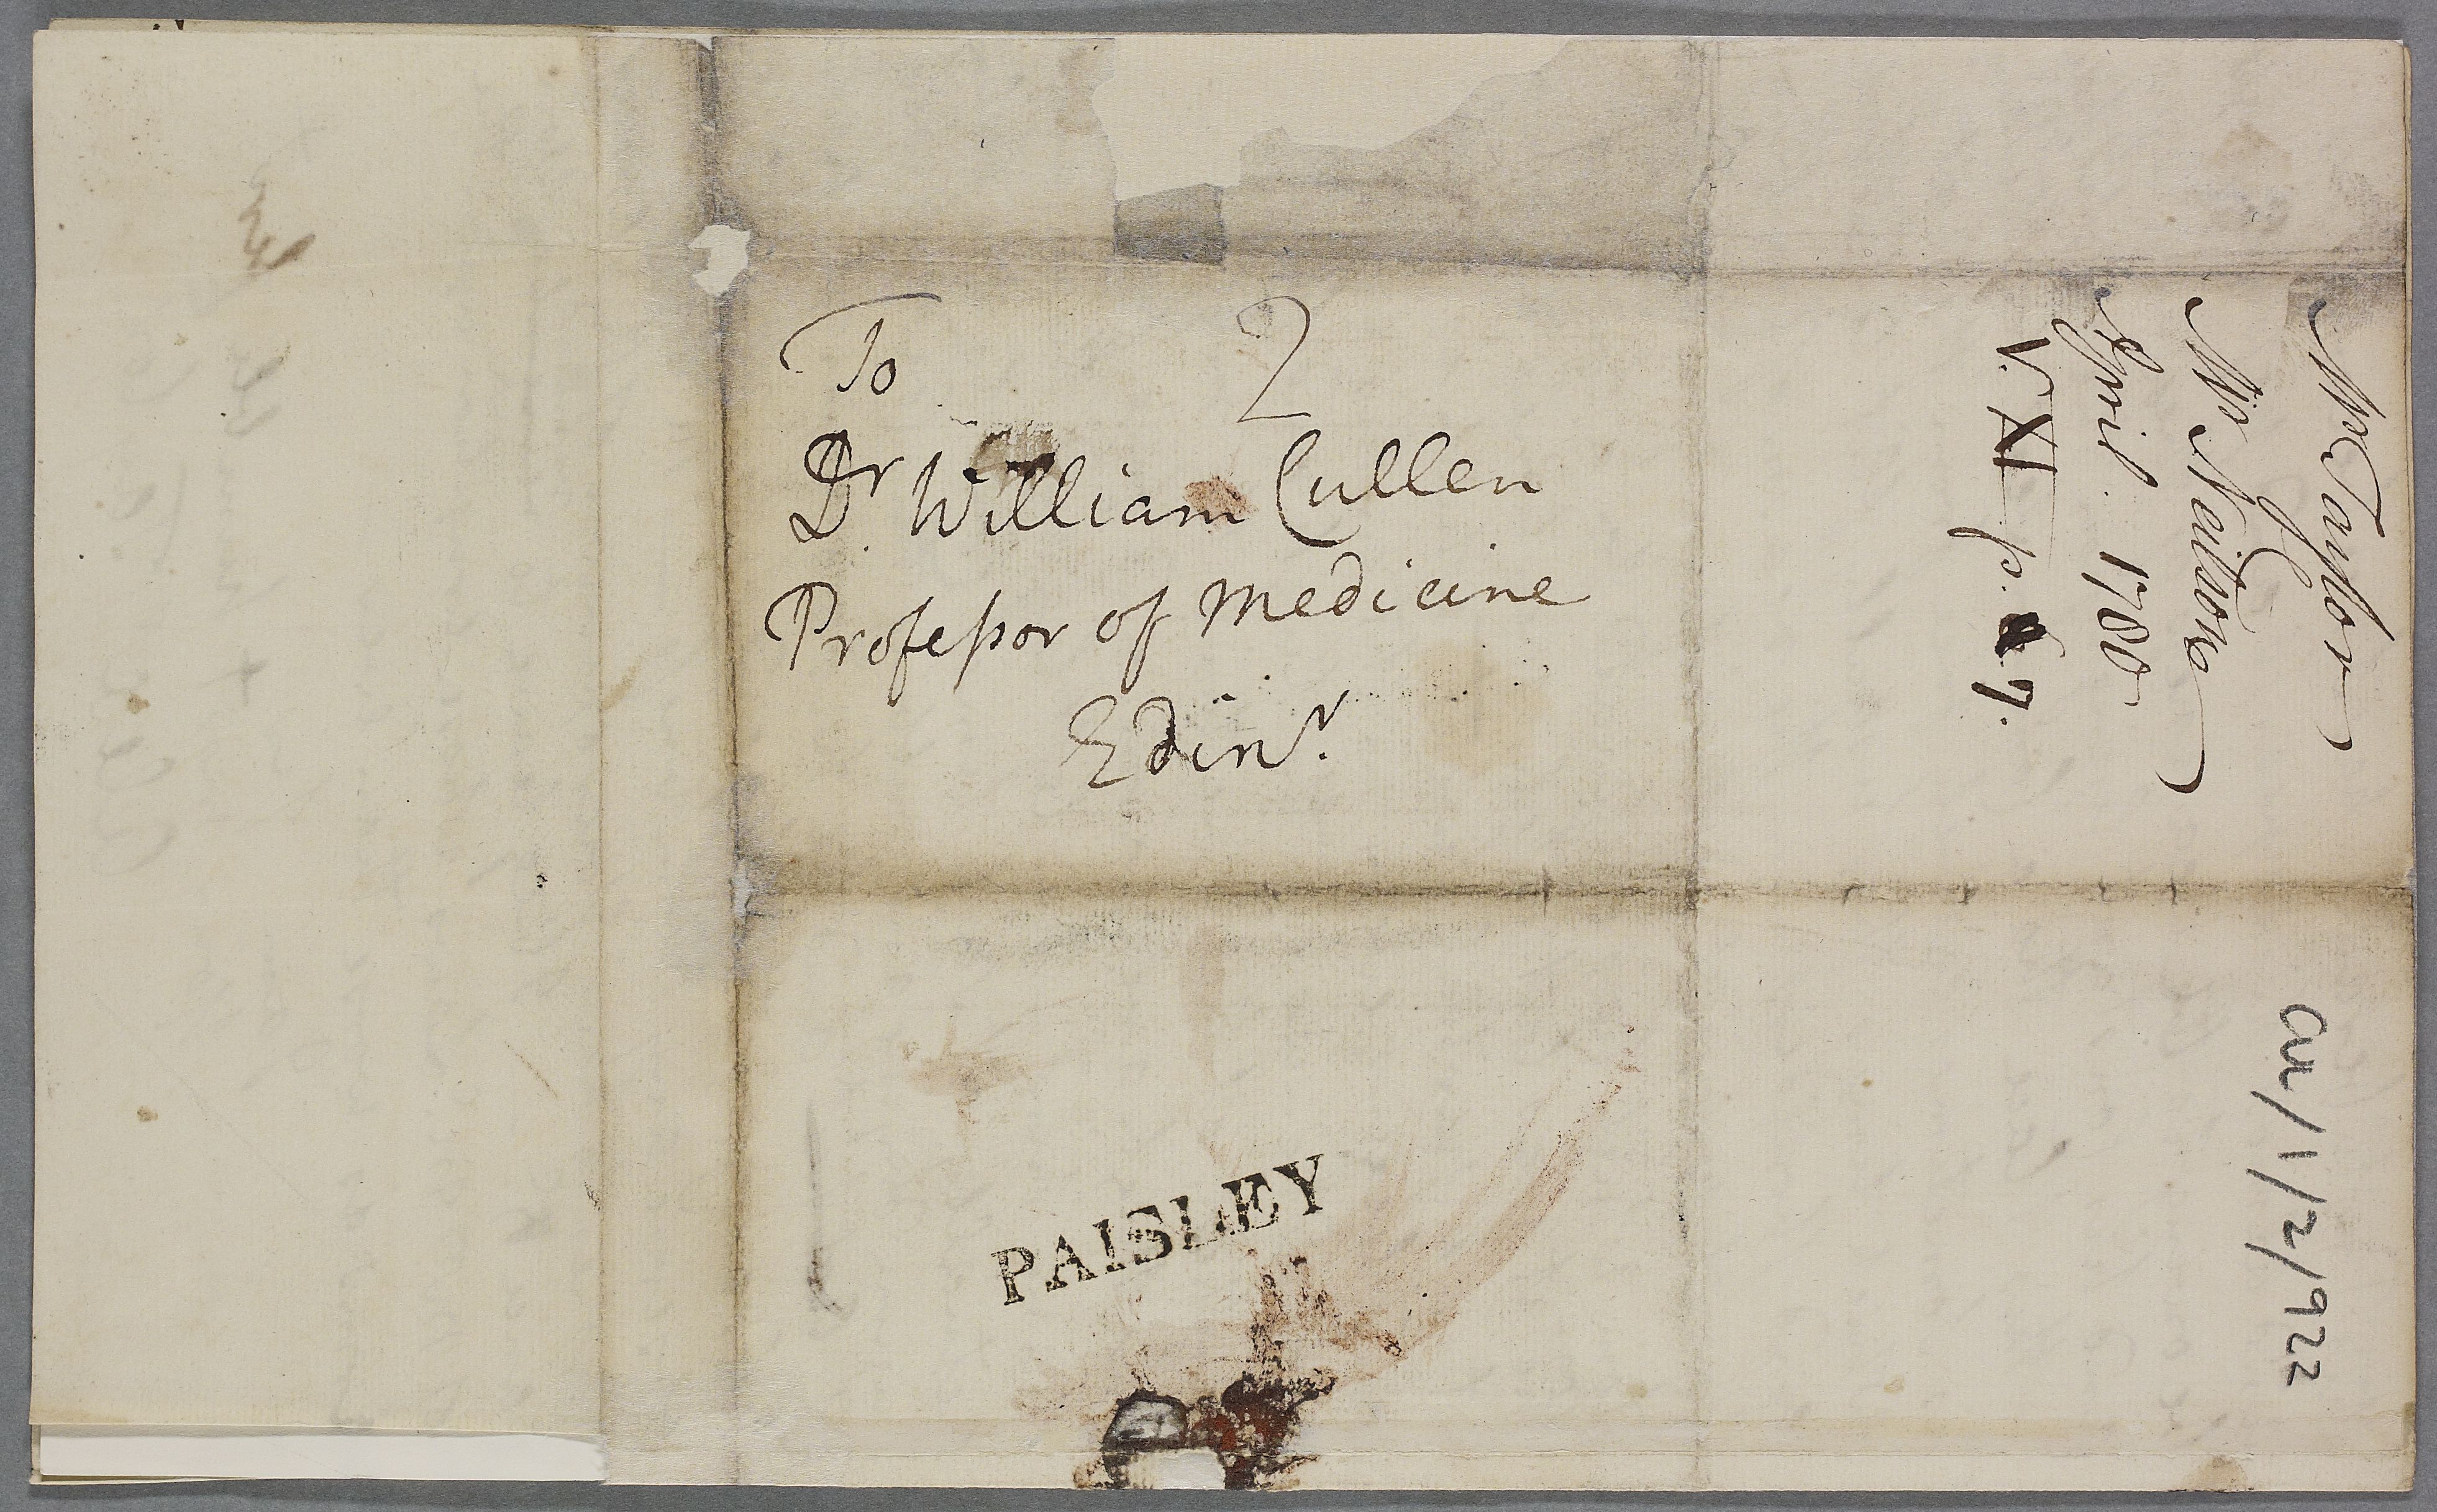 To
2
Dr. William Cullen
Professor of Medicine
Edinr.
PAISLEY
Mr Taylor
Mr Neilson
April 1780
V. XI p. 7.
CUL/1/2/922